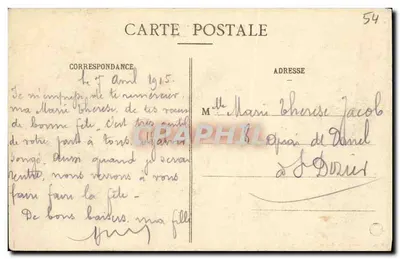 54
CARTE POSTALE
CORRESPONDANCE
ADRESSE
le 7 Avril 1915.
Je m'empresse de te remercier
ma Marie Thérèse de tes vœux
de bonne fête, c'est très gentil
de votre part à tous d'avoir
songé. Aussi quand je serai
rentré, nous verrons à vous
faire faire la fête.
De bons baisers, ma fille
Mlle Marie Thérèse Jacob
quai de
à St Dizier
CPARAMA